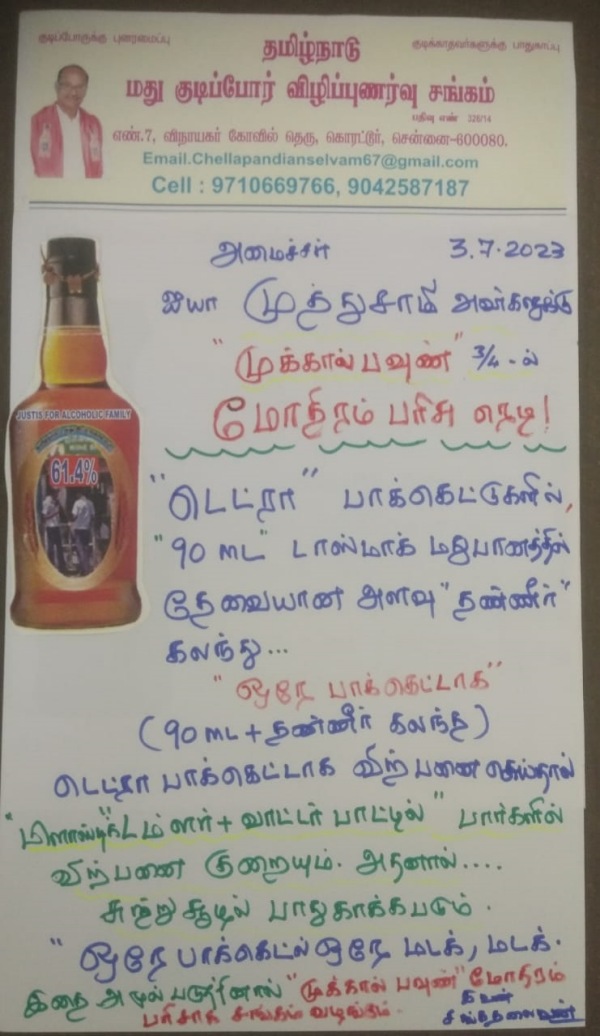 குடிப்போகுக்கு புனரமைப்பு
குடிக்காதவர்களுக்கு பாதுகாப்பு
தமிழ்நாடு
மது குடிப்போர் விழிப்புணர்வு சங்கம்
பதிவு எண் 328/14
எண்.7, விநாயகர் கோவில் தெரு, கொரட்டூர், சென்னை-600080.
Email.Chellapandianselvam67@gmail.com
Cell : 9710669766, 9042587187
அமைச்சர் 3.7.2023
ஐயா முத்துசாமி அவர்களுக்கு
"முக்கால் பவுண்" 3/4-ல்
மோதிரம் பரிசு ரெடி!
JUSTIS FOR ALCOHOLIC FAMILY
61.4%
"டெட்ரா" பாக்கெட்டுகளில்,
"90 ML" டாஸ்மாக் மதுபானத்தில்
தேவையான அளவு "தண்ணீர்"
கலந்து...
"ஒரே பாக்கெட்டாக"
(90 ML + தண்ணீர் கலந்த)
டெட்ரா பாக்கெட்டாக விற்பனை செய்தால்
"பிளாஸ்டிக் டம்ளர் + வாட்டர் பாட்டில்" பார்களில்
விற்பனை குறையும். அதனால்....
சுற்றுசூழல் பாதுகாக்கபடும்.
"ஒரே பாக்கெட்ல் ஒரே மடக், மடக்.
இதை அமுல் படுத்தினால் "முக்கால் பவுண்" மோதிரம்
பரிசாக சங்கம் வழங்கும்.